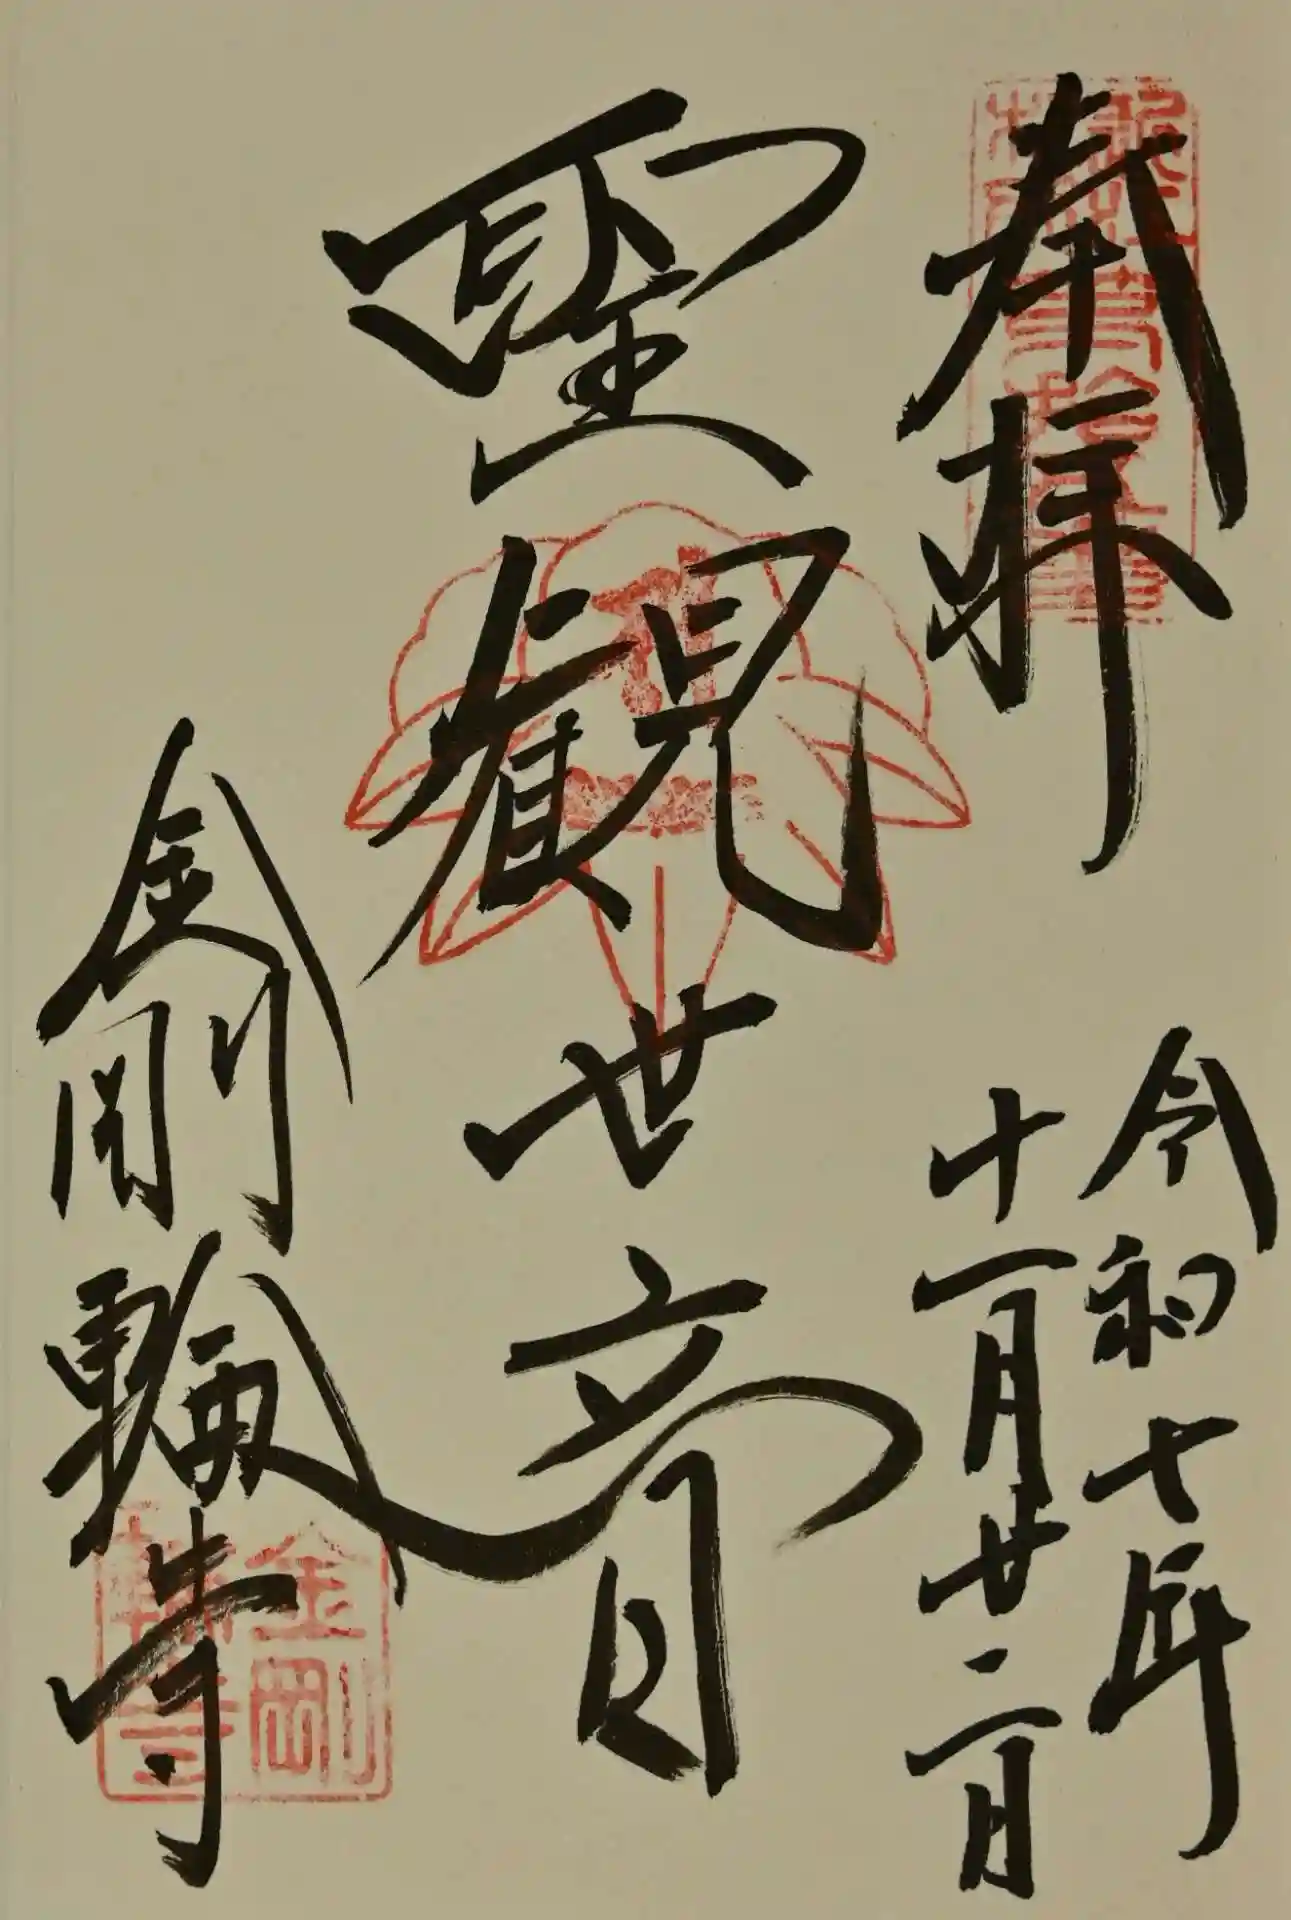 奉拝
令和七年
十一月廿二日
聖観世音
金剛輪寺
金剛
輪寺